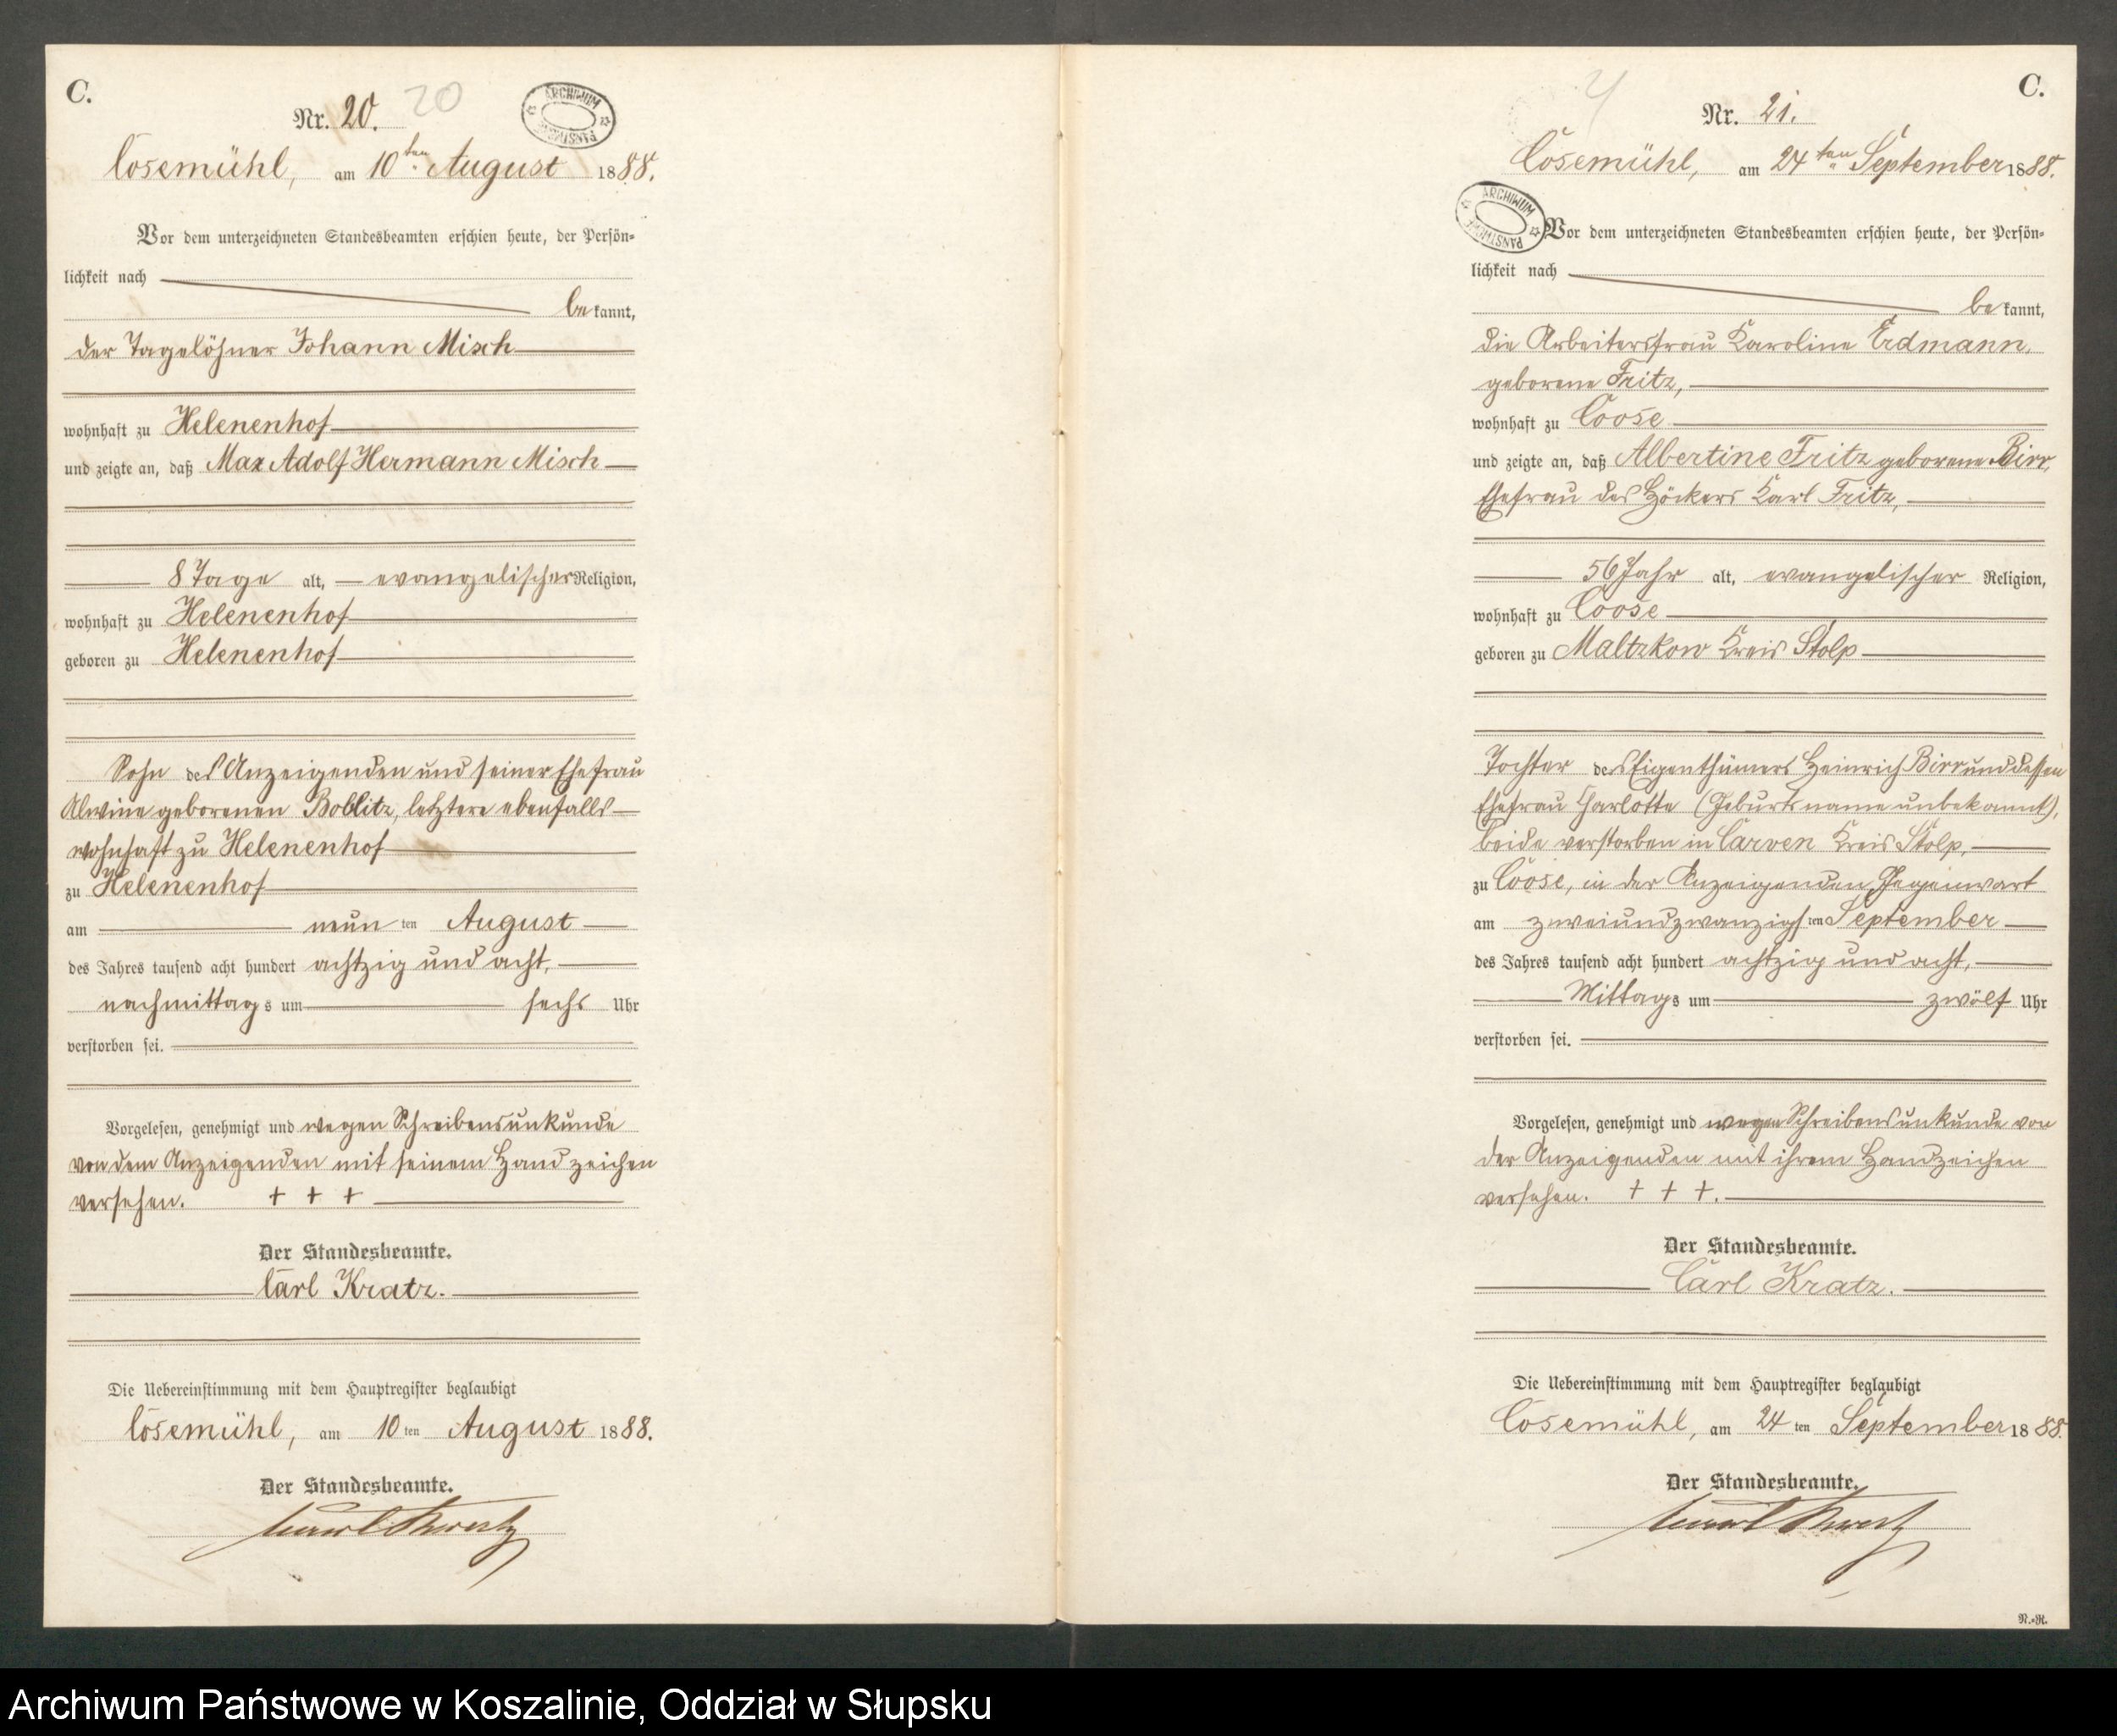 C.
Nr. 20. 20
ARCHIWUM PAŃSTWOWE
Cosemühl, am 10ten August 1888.
Vor dem unterzeichneten Standesbeamten erschien heute, der Persön-
lichkeit nach
be kannt,
der Tagelöhner Johann Misch
wohnhaft zu Helenenhof
und zeigte an, daß Max Adolf Hermann Misch
8 Tage alt, evangelischer Religion,
wohnhaft zu Helenenhof
geboren zu Helenenhof
Sohn des Anzeigenden und seiner Ehefrau
Alwine geborenen Boblitz, letztere ebenfalls
wohnhaft zu Helenenhof
zu Helenenhof
am neun ten August
des Jahres tausend acht hundert achtzig und acht,
nachmittags um sechs Uhr
verstorben sei.
Vorgelesen, genehmigt und wegen Schreibensunkunde
von dem Anzeigenden mit seinem Handzeichen
versehen. + + +
Der Standesbeamte.
Carl Kratz.
Die Uebereinstimmung mit dem Hauptregister beglaubigt
Cosemühl, am 10 ten August 1888.
Der Standesbeamte.
Carl Kratz
C.
Nr. 21.
Cosemühl, am 24ten September 1888.
ARCHIWUM PAŃSTWOWE
Vor dem unterzeichneten Standesbeamten erschien heute, der Persön-
lichkeit nach
be kannt,
die Arbeitersfrau Karoline Erdmann,
geborene Fritz,
wohnhaft zu Coose
und zeigte an, daß Albertine Fritz geborene Birr,
Ehefrau des Höckers Karl Fritz,
56 Jahr alt, evangelischer Religion,
wohnhaft zu Coose
geboren zu Maltzkow Kreis Stolp
Tochter des Eigenthümers Heinrich Birr und dessen
Ehefrau Charlotte (Geburtsname unbekannt),
beide verstorben in Carven Kreis Stolp,
zu Coose, in der Anzeigenden Gegenwart
am zweiundzwanzigsten September
des Jahres tausend acht hundert achtzig und acht,
Mittags um zwölf Uhr
verstorben sei.
Vorgelesen, genehmigt und wegen Schreibensunkunde von
der Anzeigenden mit ihrem Handzeichen
versehen. + + +.
Der Standesbeamte.
Carl Kratz.
Die Uebereinstimmung mit dem Hauptregister beglaubigt
Cosemühl, am 24 ten September 1888.
Der Standesbeamte.
Carl Kratz
N.=R.
Archiwum Państwowe w Koszalinie, Oddział w Słupsku